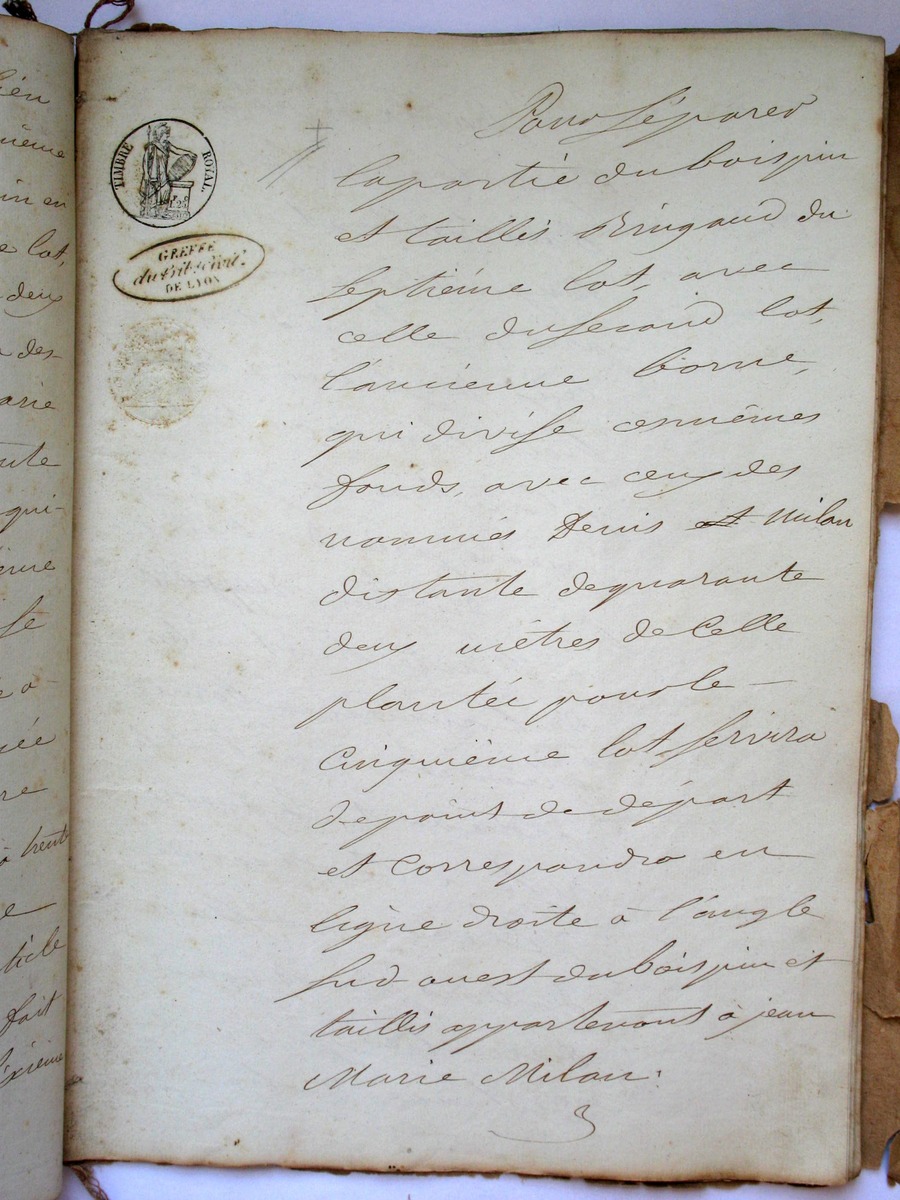 TIMBRE ROYAL.
GREFFE
du Trib. Civil
DE LYON
Pour Séparer
la partie du bois pin
et taillis Bringaud du
Septième lot, avec
celle du Second lot,
l'ancienne borne,
qui divise cesmêmes
fonds, avec ceux des
nommés Denis et Milan
distante dequarante
deux mètres de Celle
plantée pour le —
Cinquième lot servira
depoint de départ
et Correspondra en
ligne droite à l'angle
Sud ouest du bois pin et
taillis appartenant à jean
Marie Milan.
ième
in en
e lot,
deux
des
arie
nte
qui-
à trente
ticle
fait
ixième